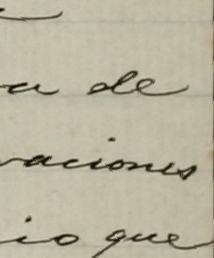 a de
vaciones
io que